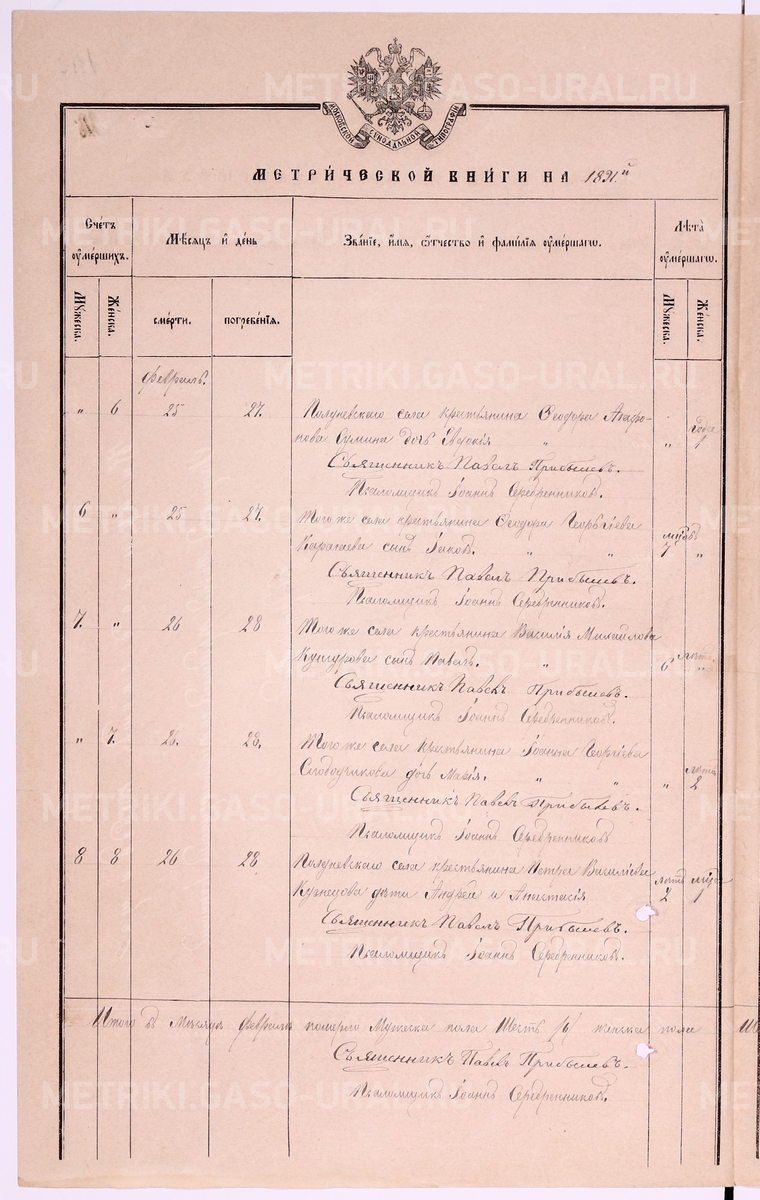 МОСКОВСКОЙ СѴНОДАЛЬНОЙ ТИПОГРАФІИ
МЕТРИ́ЧЕСКОЙ КНИ́ГИ НА 1891й
Сче́тъ ᲂу҆ме́ршихъ.
Мѣ́сяцъ и҆ де́нь
Зва́нїе, и҆́мя, ѻ҆́тчество и҆ фами́лїя ᲂу҆ме́ршагѡ.
Лѣ́та ᲂу҆ме́ршагѡ.
Му́жеска. Же́нска. сме́рти. погребе́нїя. Му́жеска. Же́нска.
Февраль.
" 6 25 27. Полдневскаго села крестьянина Ѳеодора Агафо- года
нова Сумина дочь Евдокія " " 1
Священникъ Павелъ Прибылевъ.
Псаломщикъ Іоаннъ Серебренниковъ.
6 " 25 27. Того же села крестьянина Ѳеодора Георгіева
Каратаева сынъ Іаковъ. " " 7 "
Священникъ Павелъ Прибылевъ.
Псаломщикъ Іоаннъ Серебренниковъ.
7. " 26 28 Того же села крестьянина Василія Михайлова
сынъ Павелъ. " 6 лѣтъ. "
Священникъ Павелъ Прибылевъ.
Псаломщикъ Іоаннъ Серебренниковъ.
" 7. 26. 28. Того же села крестьянина Іоанна Георгіева лѣта
Слободчикова дочь Марія. " " " 2
Священникъ Павелъ Прибылевъ.
Псаломщикъ Іоаннъ Серебренниковъ
8 8 26 28 Полдневскаго села крестьянина Петра Василіева
Кузнецова дѣти Андрей и Анастасія 2 1
Священникъ Павелъ Прибылевъ.
Псаломщикъ Іоаннъ Серебренниковъ.
Итого въ Мѣсяцѣ Февралѣ померло Мужеска пола Шесть /6/ женска пола
Священникъ Павелъ Прибылевъ.
Псаломщикъ Іоаннъ Серебренниковъ.
METRIKI.GASO-URAL.RU